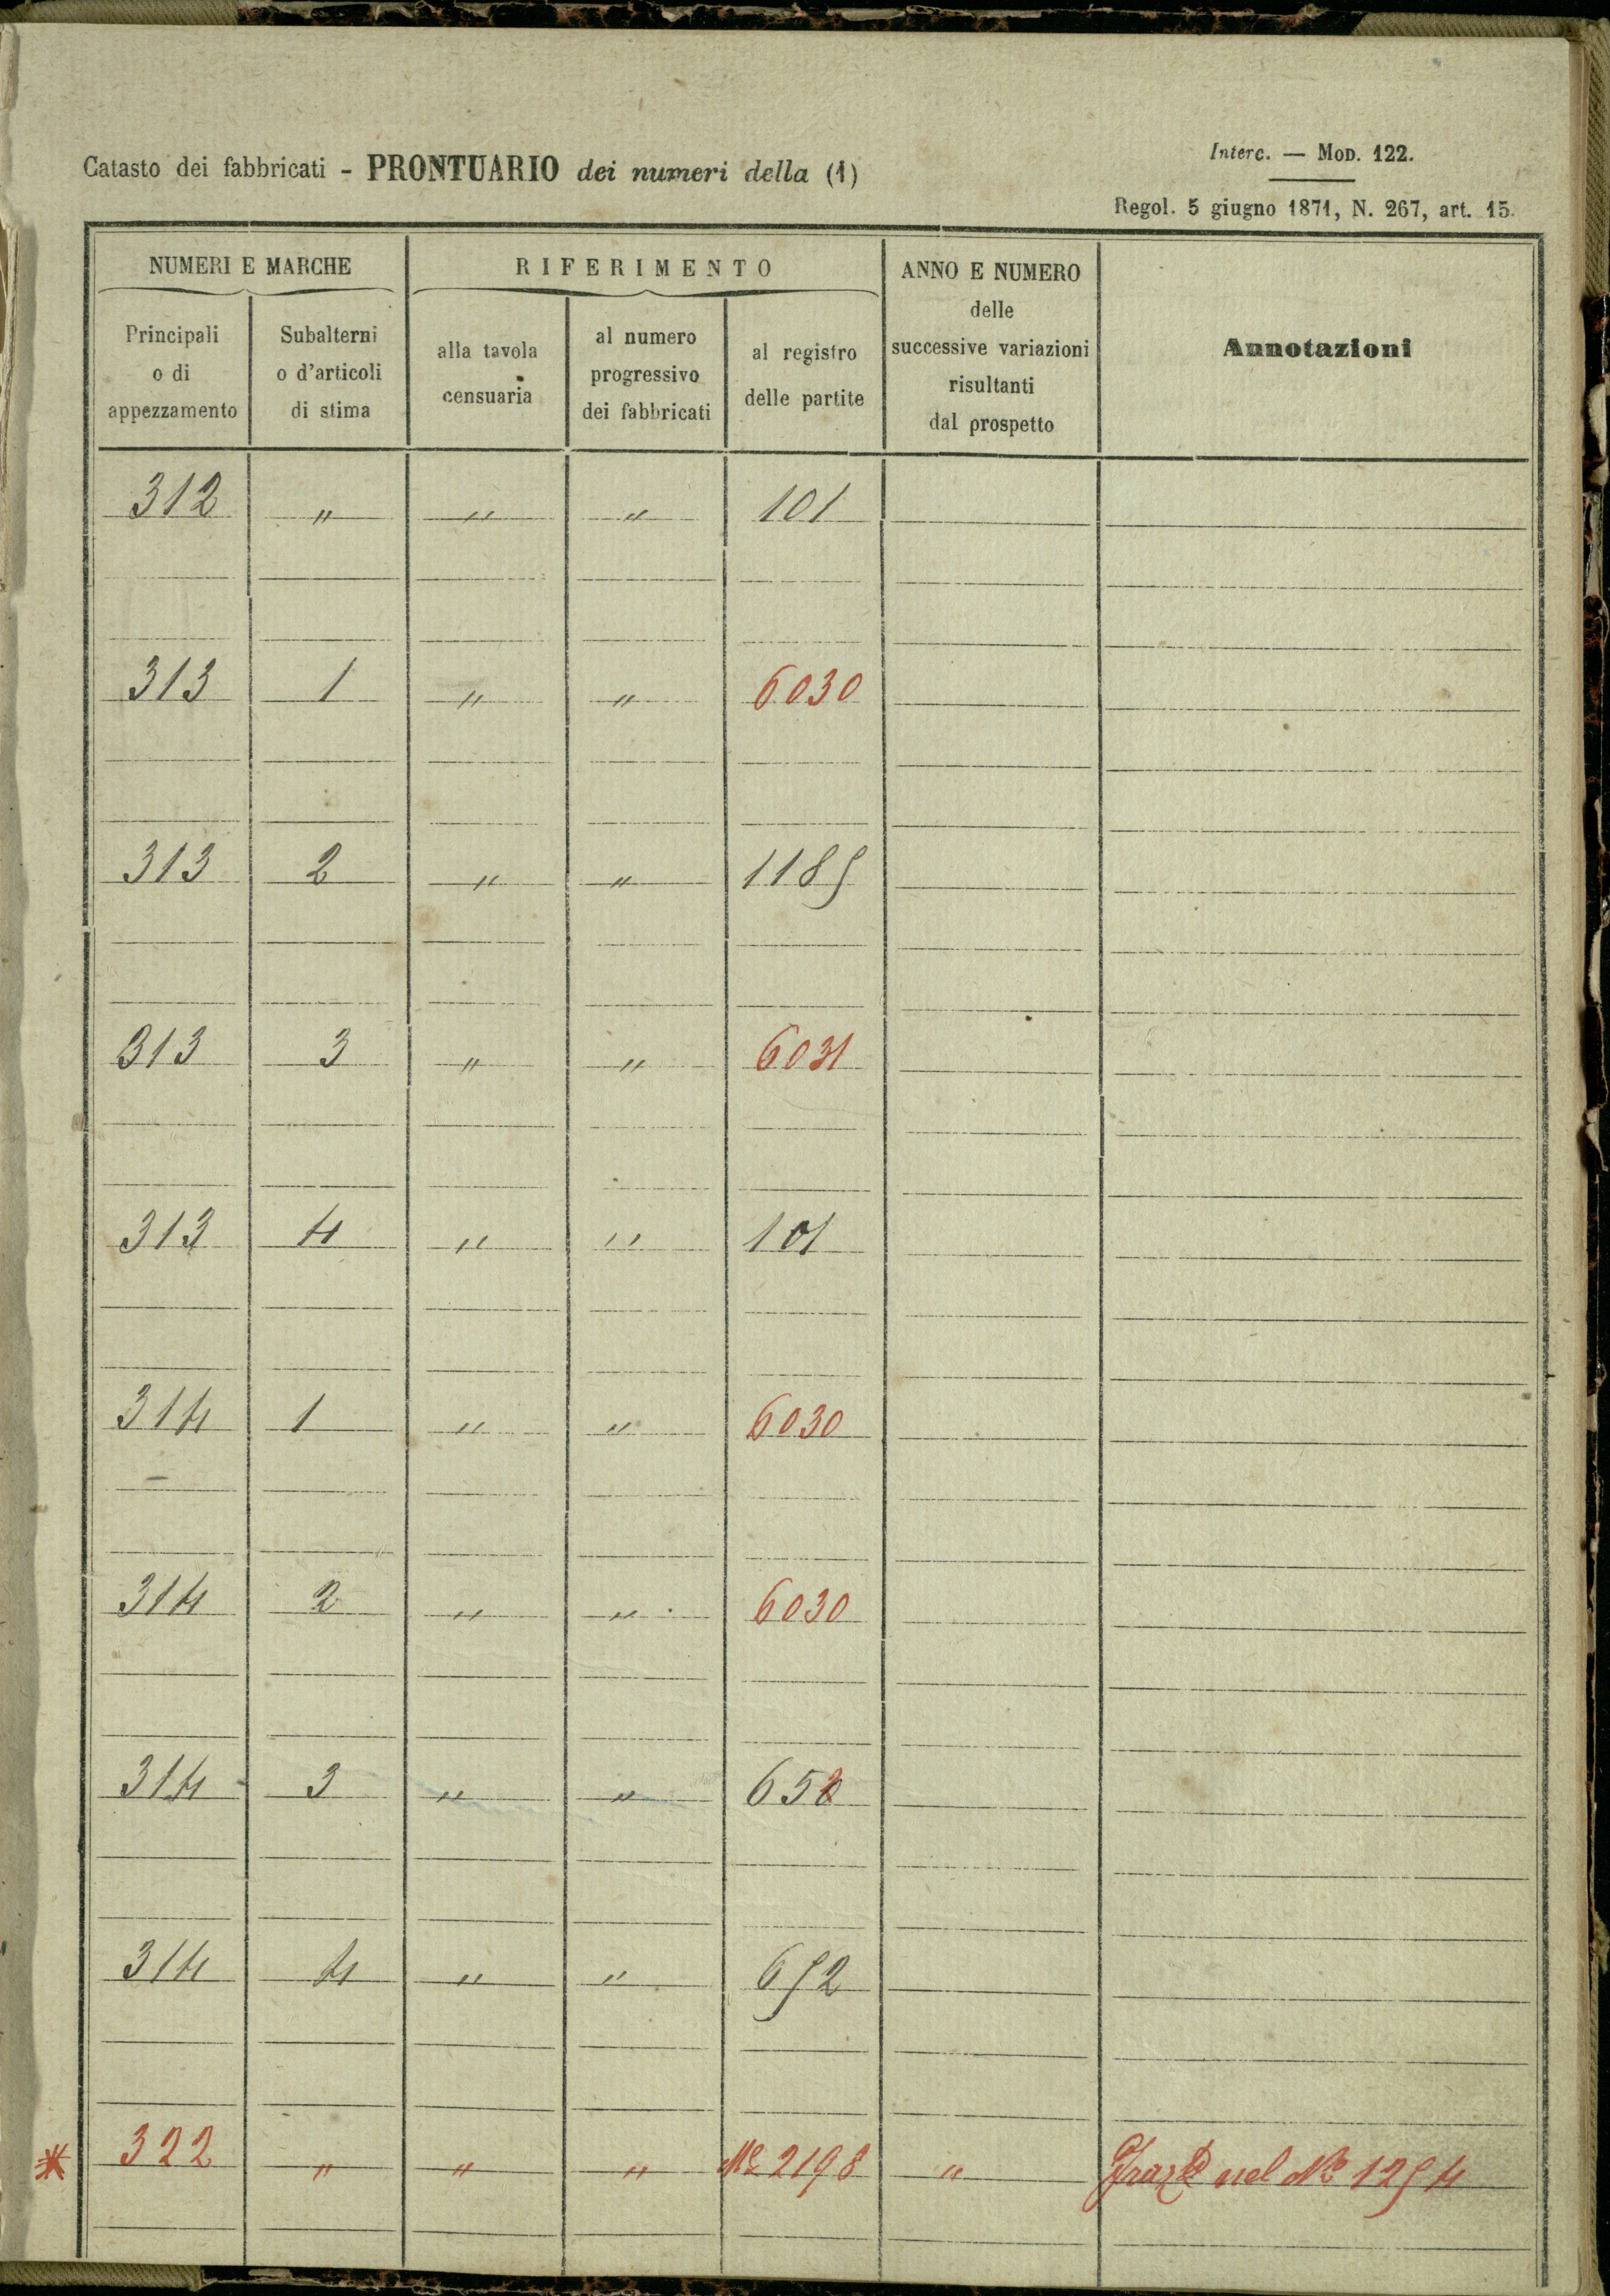 Catasto dei fabbricati - PRONTUARIO dei numeri della (1)
Interc. — Mod. 122.
Regol. 5 giugno 1871, N. 267, art. 15.
NUMERI E MARCHE
RIFERIMENTO
ANNO E NUMERO
delle
successive variazioni
risultanti
dal prospetto
Annotazioni
Principali
o di
appezzamento
Subalterni
o d'articoli
di stima
alla tavola
censuaria
al numero
progressivo
dei fabbricati
al registro
delle partite
312 " " " 101
313 1 " " 6030
313 2 " " 1185
313 3 " " 6031
313 4 " " 101
314 1 " " 6030
314 2 " " 6030
314 3 " " 652
314 4 " " 652
* 322 " " " 2198 " nel No 1254